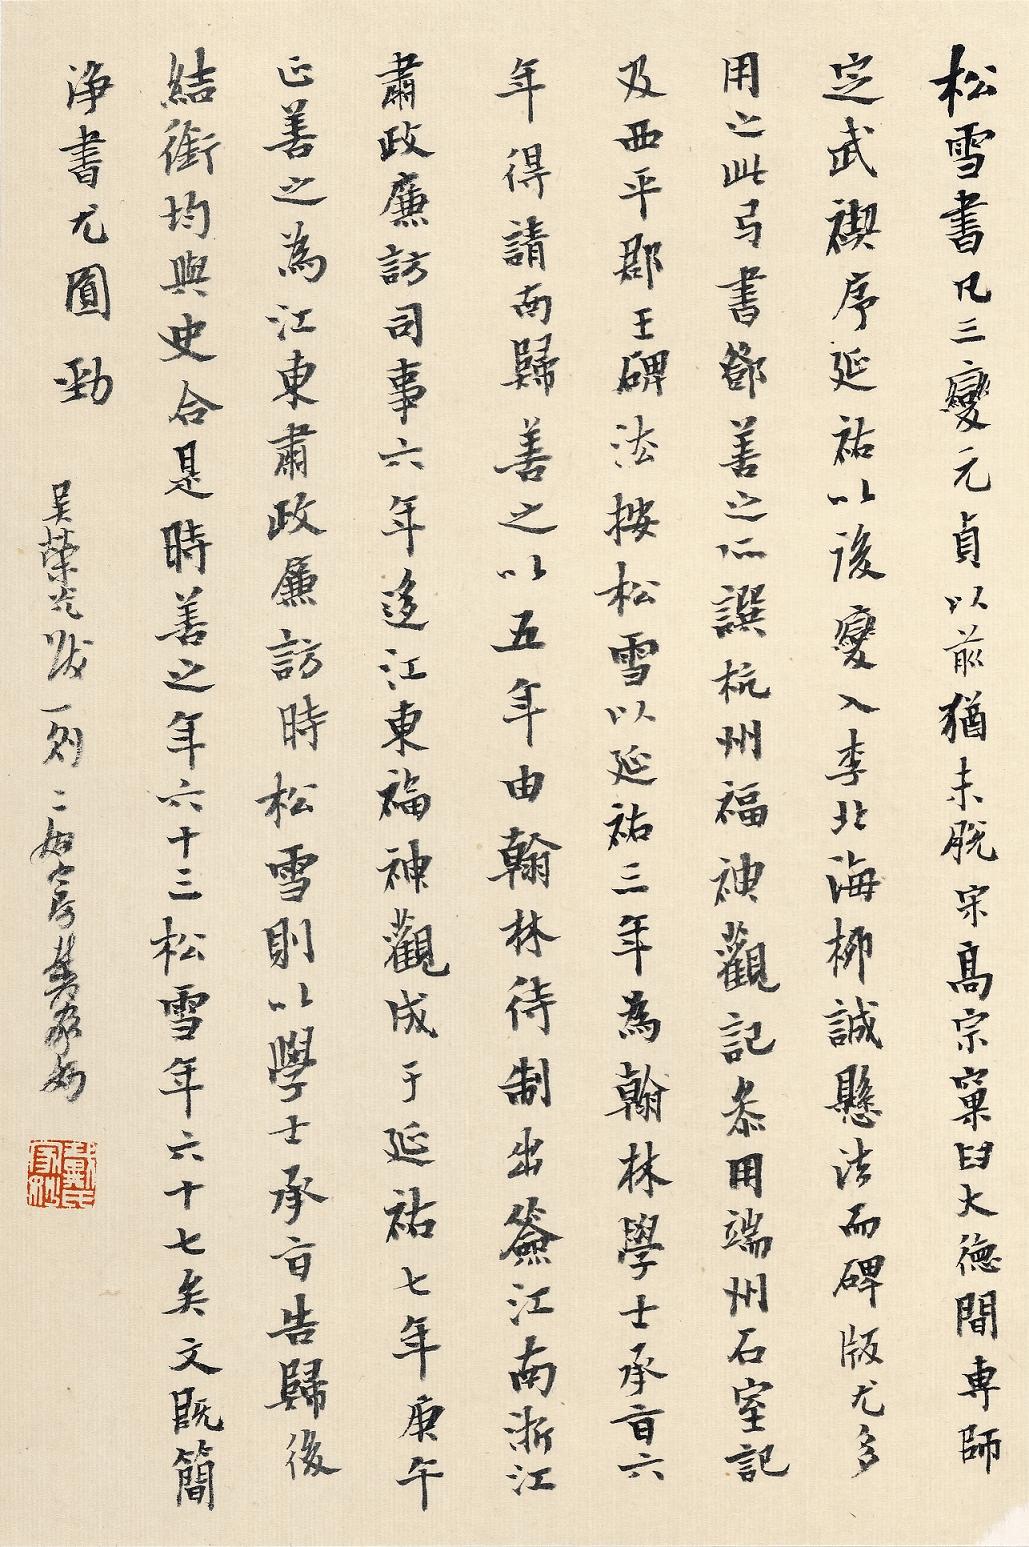 松雪書凡三變元貞以前猶未脫宋高宗窠臼大德間專師
定武禊序延祐以後變入李北海柳誠懸法而碑版尤多
用之此与書鄧善之所譔杭州福神觀記叅用端州石室記
及西平郡王碑法按松雪以延祐三年為翰林學士承旨六
年得請南歸善之以五年由翰林待制出簽江南浙江
肅政廉訪司事六年迻江東福神觀成于延祐七年庚午
正善之為江東肅政廉訪時松雪則以學士承旨告歸後
結銜均與史合是時善之年六十三松雪年六十七矣文既簡
淨書尤圓勁
吳榮光跋一則
戴氏家妙